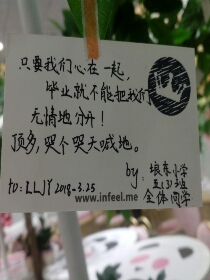 只要我们心在一起，
毕业就不能把我们
无情地分开！
顶多，哭个哭天喊地。
by：埌东小学
五(3)班
全体同学
to：LLJY 2018-3.25
www.infeel.me